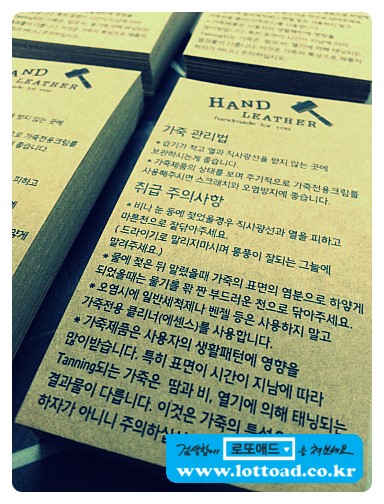 HAND
LEATHER
handmade for you
가죽 관리법
* 습기가 적고 열과 직사광선을 받지 않는 곳에
보관하시는게 좋습니다.
* 가죽제품의 상태를 보며 주기적으로 가죽전용크림을
사용해주시면 스크래치와 오염방지에 좋습니다.
취급 주의사항
* 비나 눈 등에 젖었을경우 직사광선과 열을 피하고
마른천으로 잘닦아주세요.
(드라이기로 말리지마시며 통풍이 잘되는 그늘에
말려주세요.)
* 물에 젖은 뒤 말렸을때 가죽의 표면의 염분으로 하얗게
되었을때는 물기를 꽉 짠 부드러운 천으로 닦아주세요.
* 오염시에 일반세척제나 벤젤 등은 사용하지 말고
가죽전용 클리너(에센스)를 사용합니다.
* 가죽제품은 사용자의 생활패턴에 영향을
많이받습니다. 특히 표면이 시간이 지남에 따라
Tanning되는 가죽은 땀과 비, 열기에 의해 태닝되는
결과물이 다릅니다. 이것은 가죽의 특성
하자가 아니니 주의하십
HAND
LEATHER
made for you
받지 않는 곳에
가죽전용크림을
습니다.
피하고
그늘에
하얗게
주세요.
말고
검색창에 로또애드 를 쳐보세요
www.lottoad.co.kr